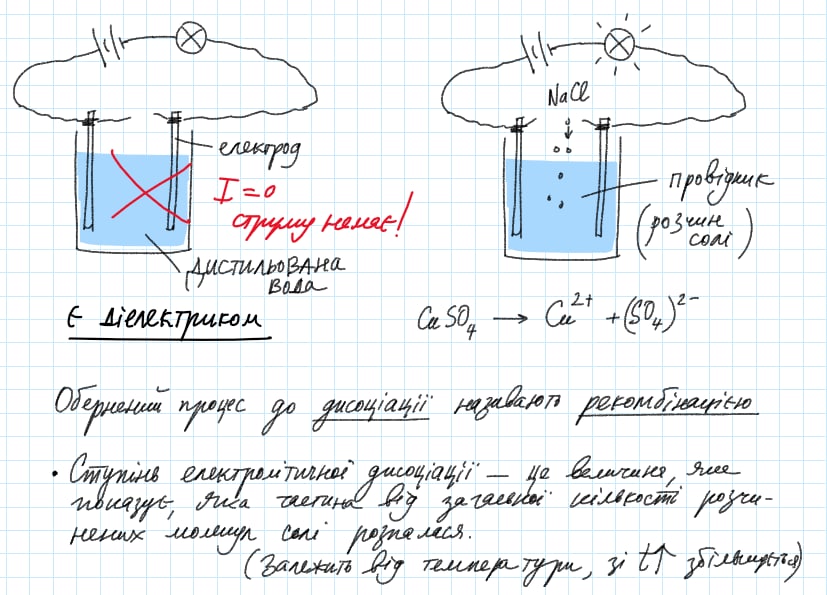 NaCl
електрод
I = 0
струму немає!
дистильована
вода
провідник
(розчин
солі)
Є діелектриком
CuSO₄ → Cu²⁺ + (SO₄)²⁻
Обернений процес до дисоціації називають рекомбінацією
• Ступінь електролітичної дисоціації — це величина, яка
показує, яка частина від загальної кількості розчи-
нених молекул солі розпалася.
(Залежить від температури, зі t↑ збільшується)